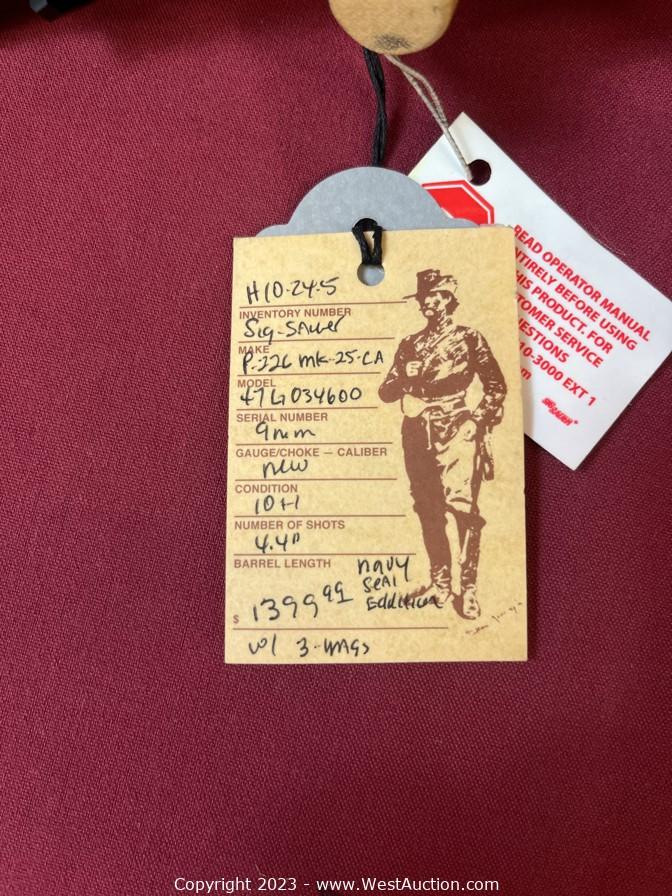 H10-24-5
INVENTORY NUMBER
Sig-Sauer
MAKE
P-226 MK-25-CA
MODEL
47G034600
SERIAL NUMBER
9mm
GAUGE/CHOKE — CALIBER
new
CONDITION
10+1
NUMBER OF SHOTS
4.4"
BARREL LENGTH
navy
Seal
Eddition
$ 1399 99
w/ 3-mags
READ OPERATOR MANUAL
BEFORE USING
THIS PRODUCT. FOR
SERVICE
10-3000 EXT 1
SIG SAUER
Copyright 2023 - www.WestAuction.com